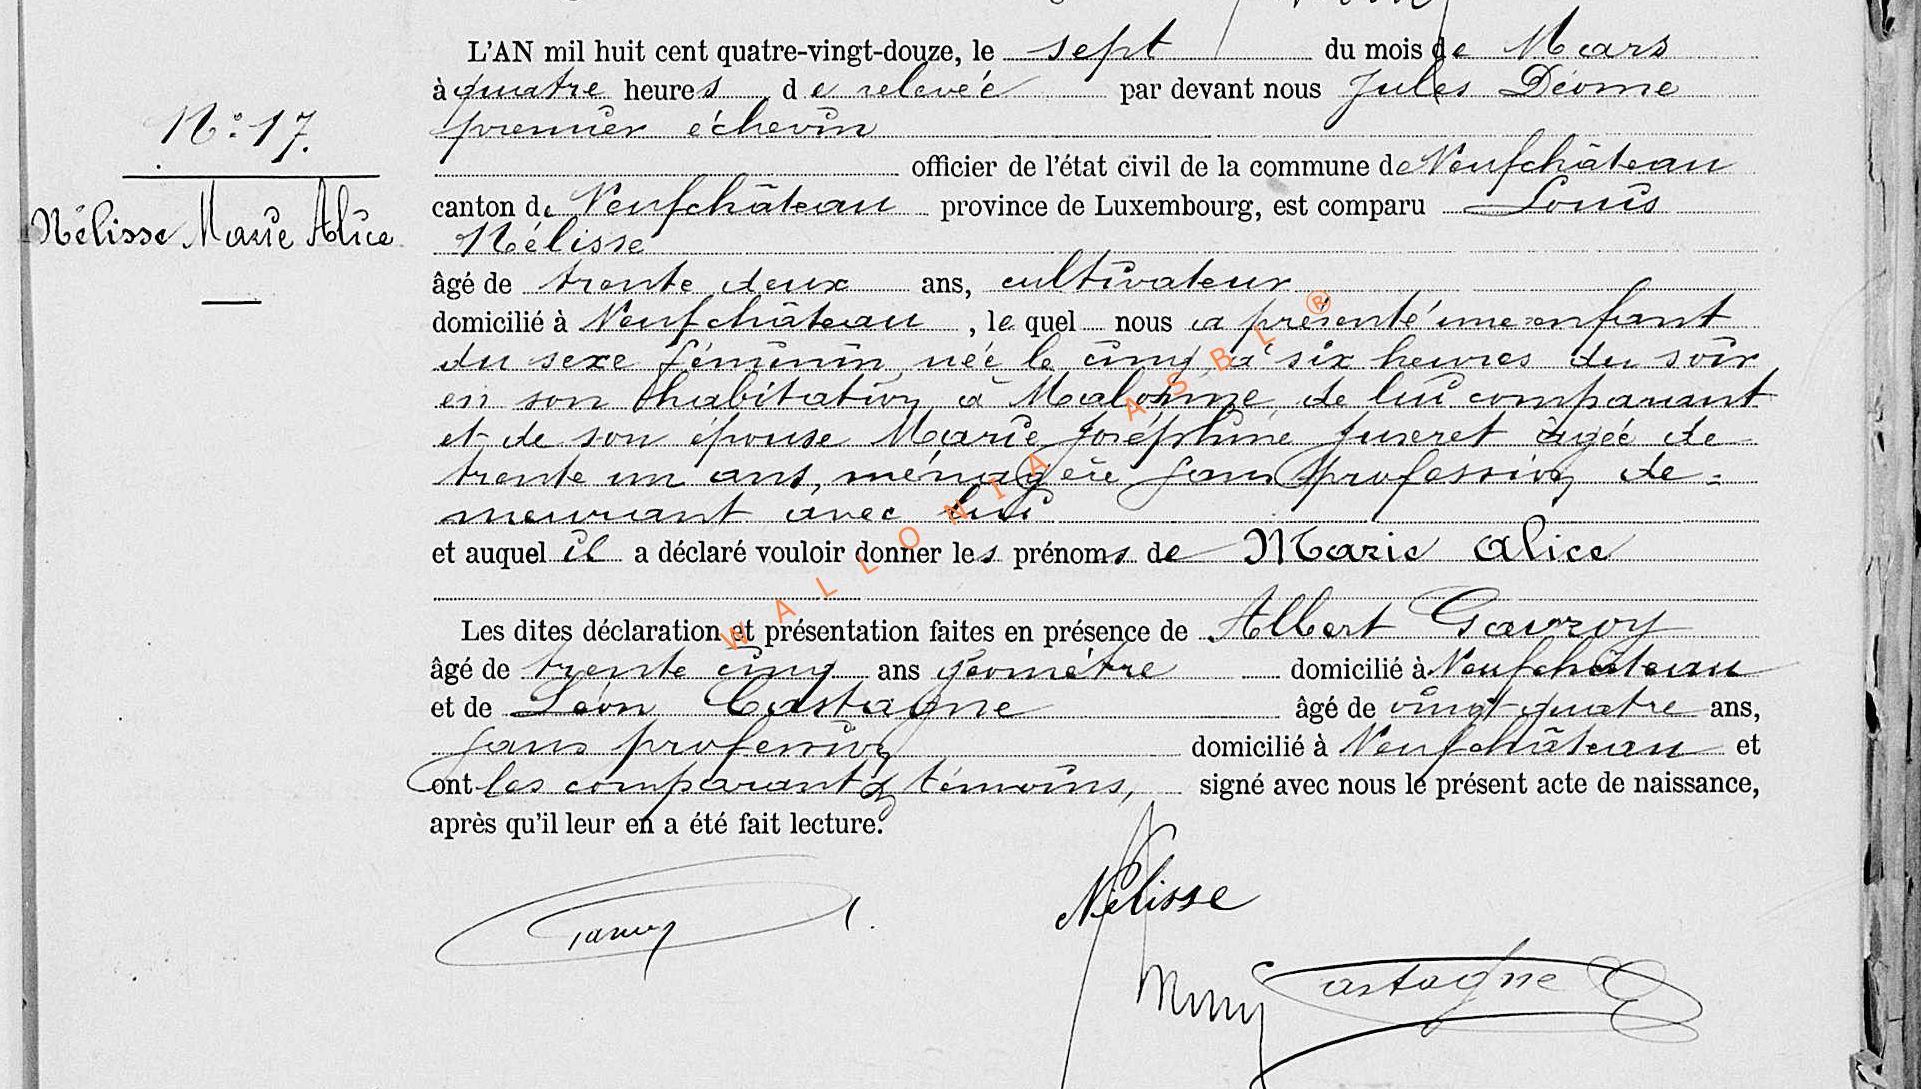 L'AN mil huit cent quatre-vingt-douze, le sept du mois de Mars
à quatre heures de relevée par devant nous Jules Déome
premier échevin
officier de l'état civil de la commune de Neufchâteau
canton de Neufchâteau province de Luxembourg, est comparu Louis
Nélisse
N° 17.
Nélisse Marie Alice
âgé de trente deux ans, cultivateur
domicilié à Neufchâteau, le quel nous a présenté une enfant
du sexe féminin, née le cinq à six heures du soir
en son habitation à Malomé, de lui comparant
et de son épouse Marie Joséphine Juseret âgée de
trente un ans, ménagère sans profession de=
meurant avec lui
et auquel il a déclaré vouloir donner les prénoms de Marie Alice
Les dites déclaration et présentation faites en présence de Albert Gavroy
âgé de trente cinq ans géomètre domicilié à Neufchâteau
et de Léon Castagne âgé de vingt-quatre ans,
sans profession domicilié à Neufchâteau et
ont les comparant & témoins, signé avec nous le présent acte de naissance,
après qu'il leur en a été fait lecture.
Nélisse
Castagne
WALLONIA ASBL ®